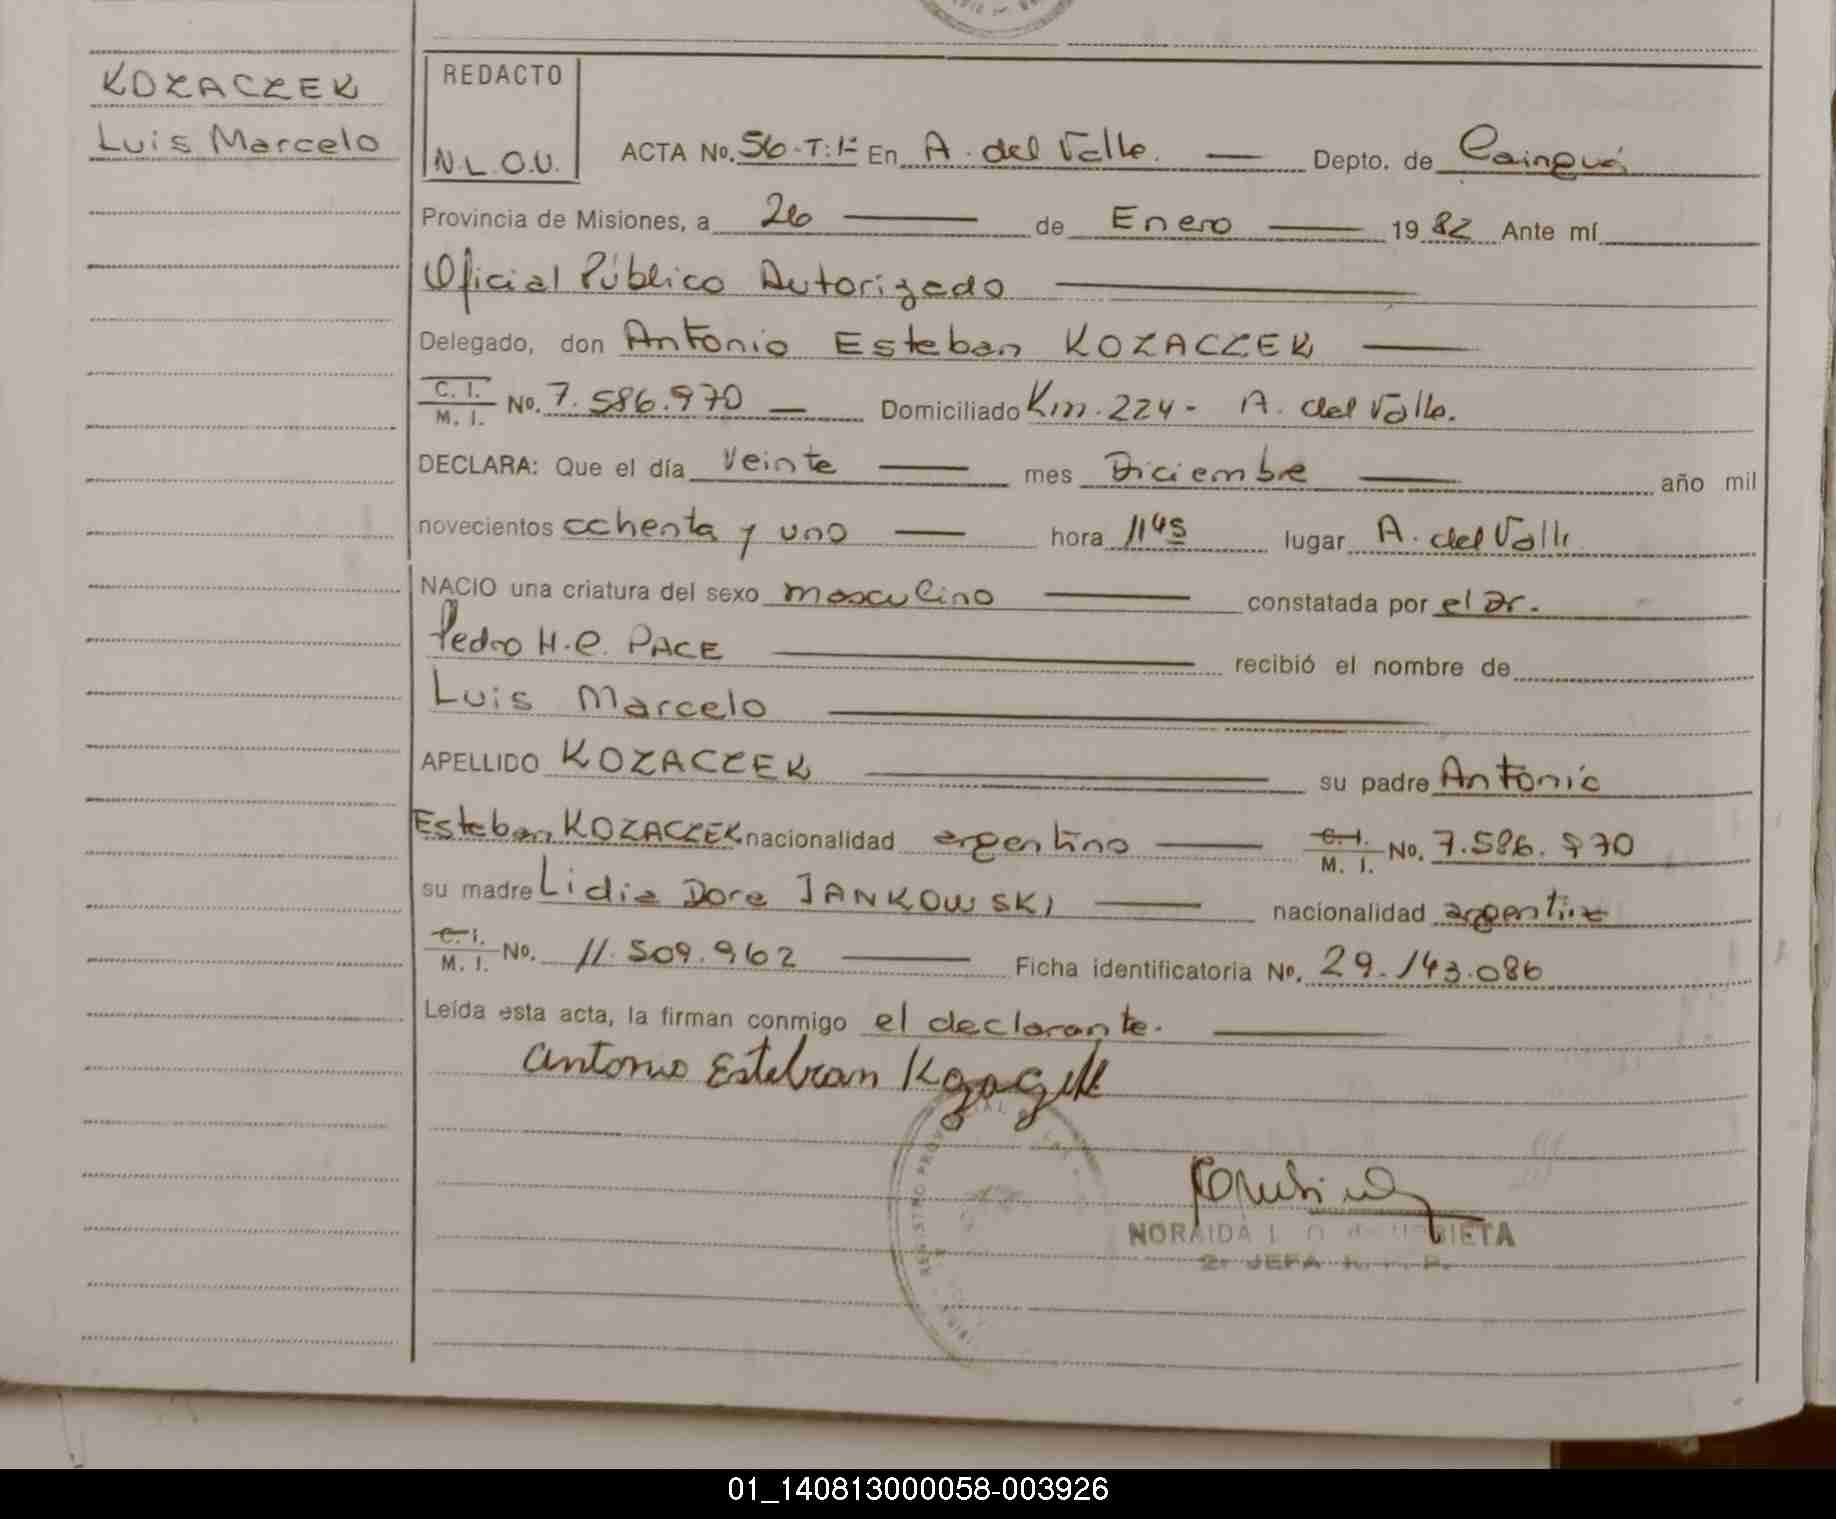 KOZACZEK
Luis Marcelo
REDACTO
N.L.O.U.
ACTA No. 56-T:1º En A. del Valle. Depto. de Cainguás
Provincia de Misiones, a 26 de Enero 1982 Ante mí
Oficial Público Autorizado
Delegado, don Antonio Esteban KOZACZEK
C. I.
M. I. No. 7.586.970 Domiciliado Km. 224 - A. del Valle.
DECLARA: Que el día veinte mes Diciembre año mil
novecientos ochenta y uno hora 1145 lugar A. del Valle
NACIO una criatura del sexo masculino constatada por el Dr.
Pedro H.C. PACE recibió el nombre de
Luis Marcelo
APELLIDO KOZACZEK su padre Antonio
Esteban KOZACZEK nacionalidad argentino C. I.
M. I. No. 7.586.970
su madre Lidia Dora JANKOWSKI nacionalidad argentina
C. I.
M. I. No. 11.509.962 Ficha identificatoria No. 29.143.086
Leída esta acta, la firman conmigo el declarante.
Antonio Esteban Kozaczek
REGISTRO PROV
NORAIDA L. O. de URRIETA
2º JEFA R. P.
01_140813000058-003926